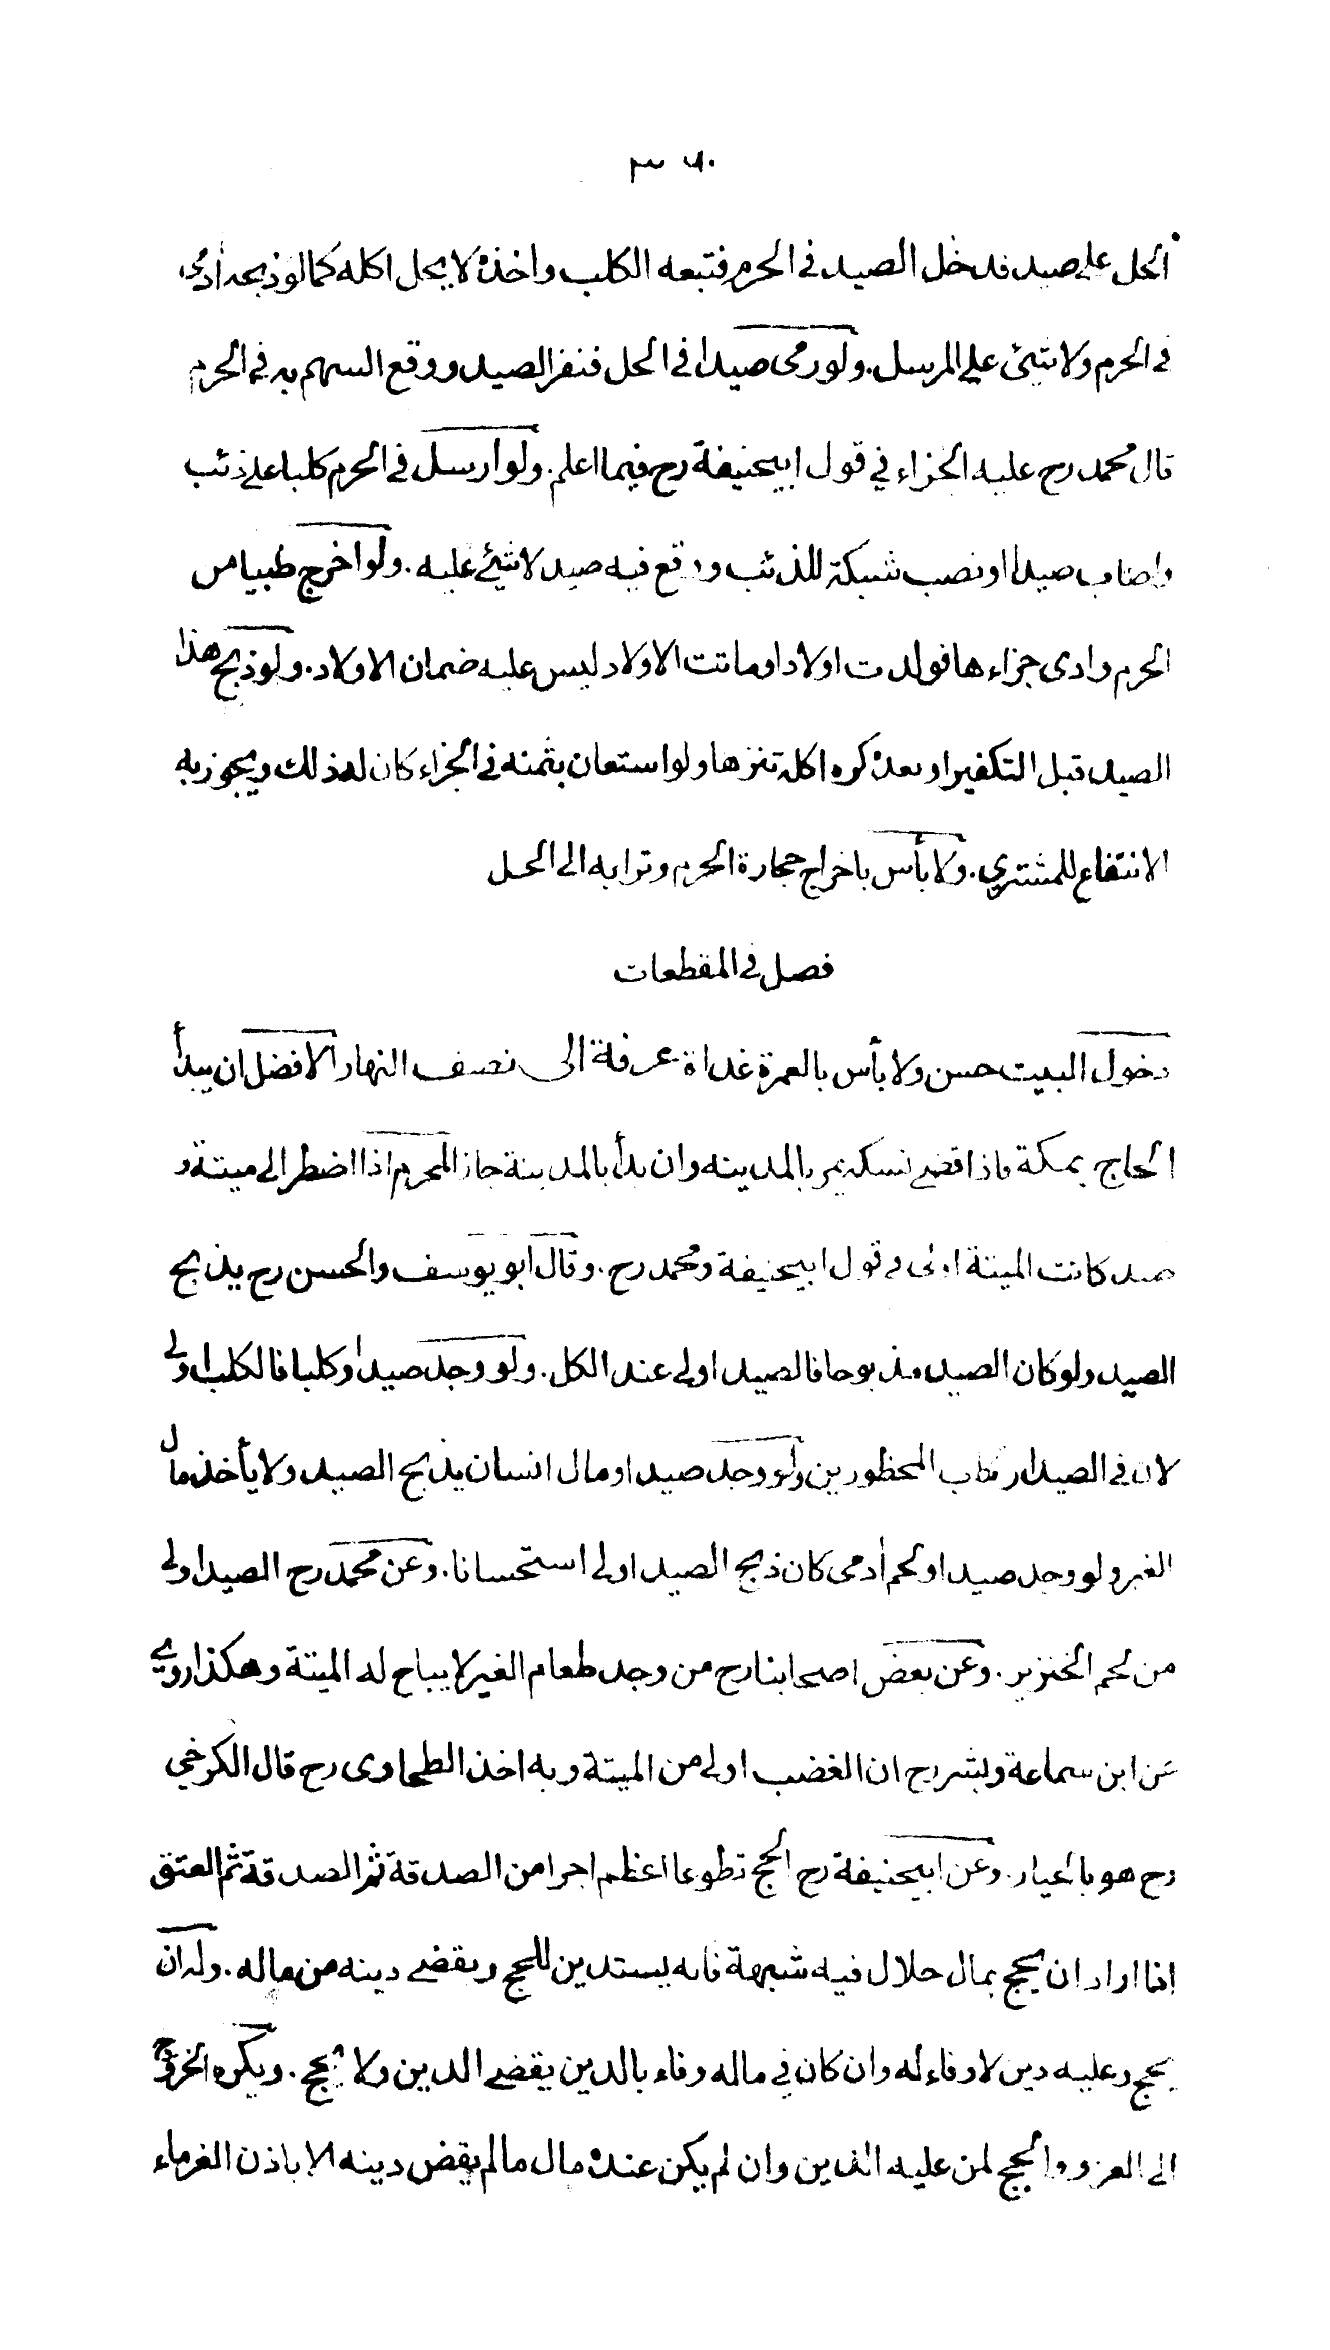 ٣٤٠
الحل على صيد فدخل الصيد في الحرم فتبعه الكلب واخذه لا يحل اكله كما لو ذبحه أدمي
في الحرم ولا شئ على المرسل. ولو رمى صيدا في الحل فنفر الصيد ووقع السهم به في الحرم
قال محمد رح عليه الجزاء في قول ابيحنيفة رح فيما اعلم. ولو ارسل في الحرم كلبا على ذئب
واصاب صيدا او نصب شبكة للذئب ووقع فيه صيد لا شئ عليه. ولو اخرج ظبيا من
الحرم وادى جزاءها فولدت اولادا وماتت الاولاد ليس عليه ضمان الاولاد. ولو ذبح هذا
الصيد قبل التكفير او بعده كره اكله تنزها ولو استعان بثمنه في الجزاء كان له ذلك ويجوز به
الانتفاع للمشتري. ولا بأس باخراج حجارة الحرم وترابه الى الحل
فصل في المقطعات
دخول البيت حسن ولا بأس بالعمرة غداة عرفة الى نصف النهار الافضل ان يبدأ
الحاج بمكة فاذا قضى نسكه يمر بالمدينه وان بدأ بالمدينة جاز المحرم اذا اضطر الى ميتة و
صيد كانت الميتة اولى في قول ابيحنيفة ومحمد رح. وقال ابو يوسف والحسن رح يذبح
الصيد ولو كان الصيد مذبوحا فالصيد اولى عند الكل. ولو وجد صيدا وكلبا فالكلب اولى
لان في الصيد ارتكاب المحظورين ولو وجد صيدا ومال انسان يذبح الصيد ولا يأخذ مال
الغير ولو وجد صيدا ولحم أدمى كان ذبح الصيد اولى استحسانا. وعن محمد رح الصيد اولى
من لحم الخنزير. وعن بعض اصحابنا رح من وجد طعام الغير لا يباح له الميتة وهكذا روي
عن ابن سماعة وبشر رح ان الغضب اولى من الميتة وبه اخذ الطحاوى رح قال الكرخي
رح هو بالخيار. وعن ابيحنيفة رح الحج تطوعا اعظم اجرا من الصدقة ثم الصدقة ثم العتق
اذا اراد ان يحج بمال حلال فيه شبهة فانه يستدين للحج ويقضى دينه من ماله. وله ان
يحج وعليه دين لا وفاء له وان كان في ماله وفاء بالدين يقضى الدين ولا يحج. ويكره الخروج
الى الغزو والحج لمن عليه الدين وان لم يكن عنده مال مالم يقض دينه الا باذن الغرماء